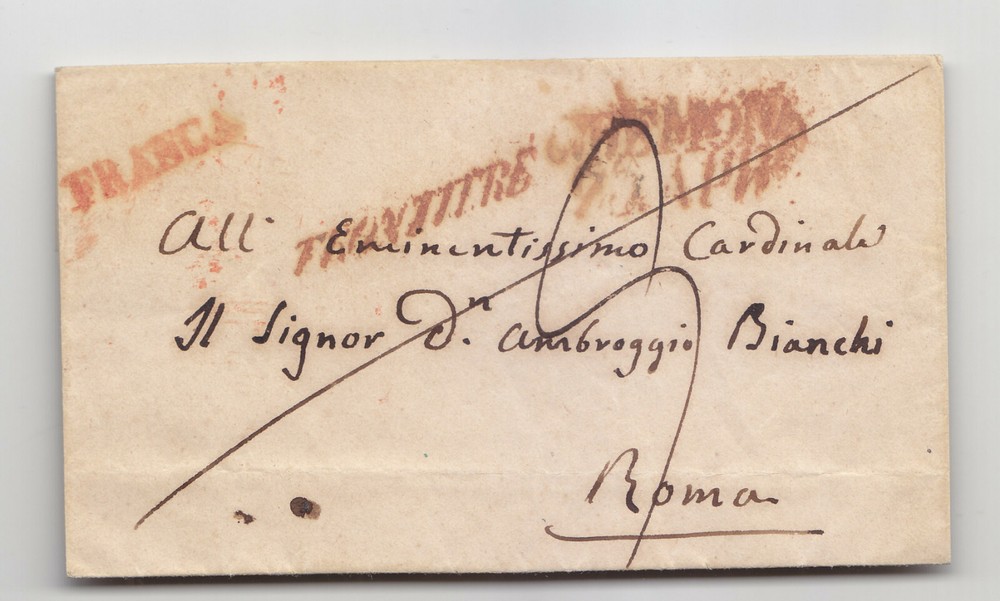 FRANCA
CREMONA
All' Eminentissimo Cardinale
Il Signor Dn. Ambroggio Bianchi
Roma